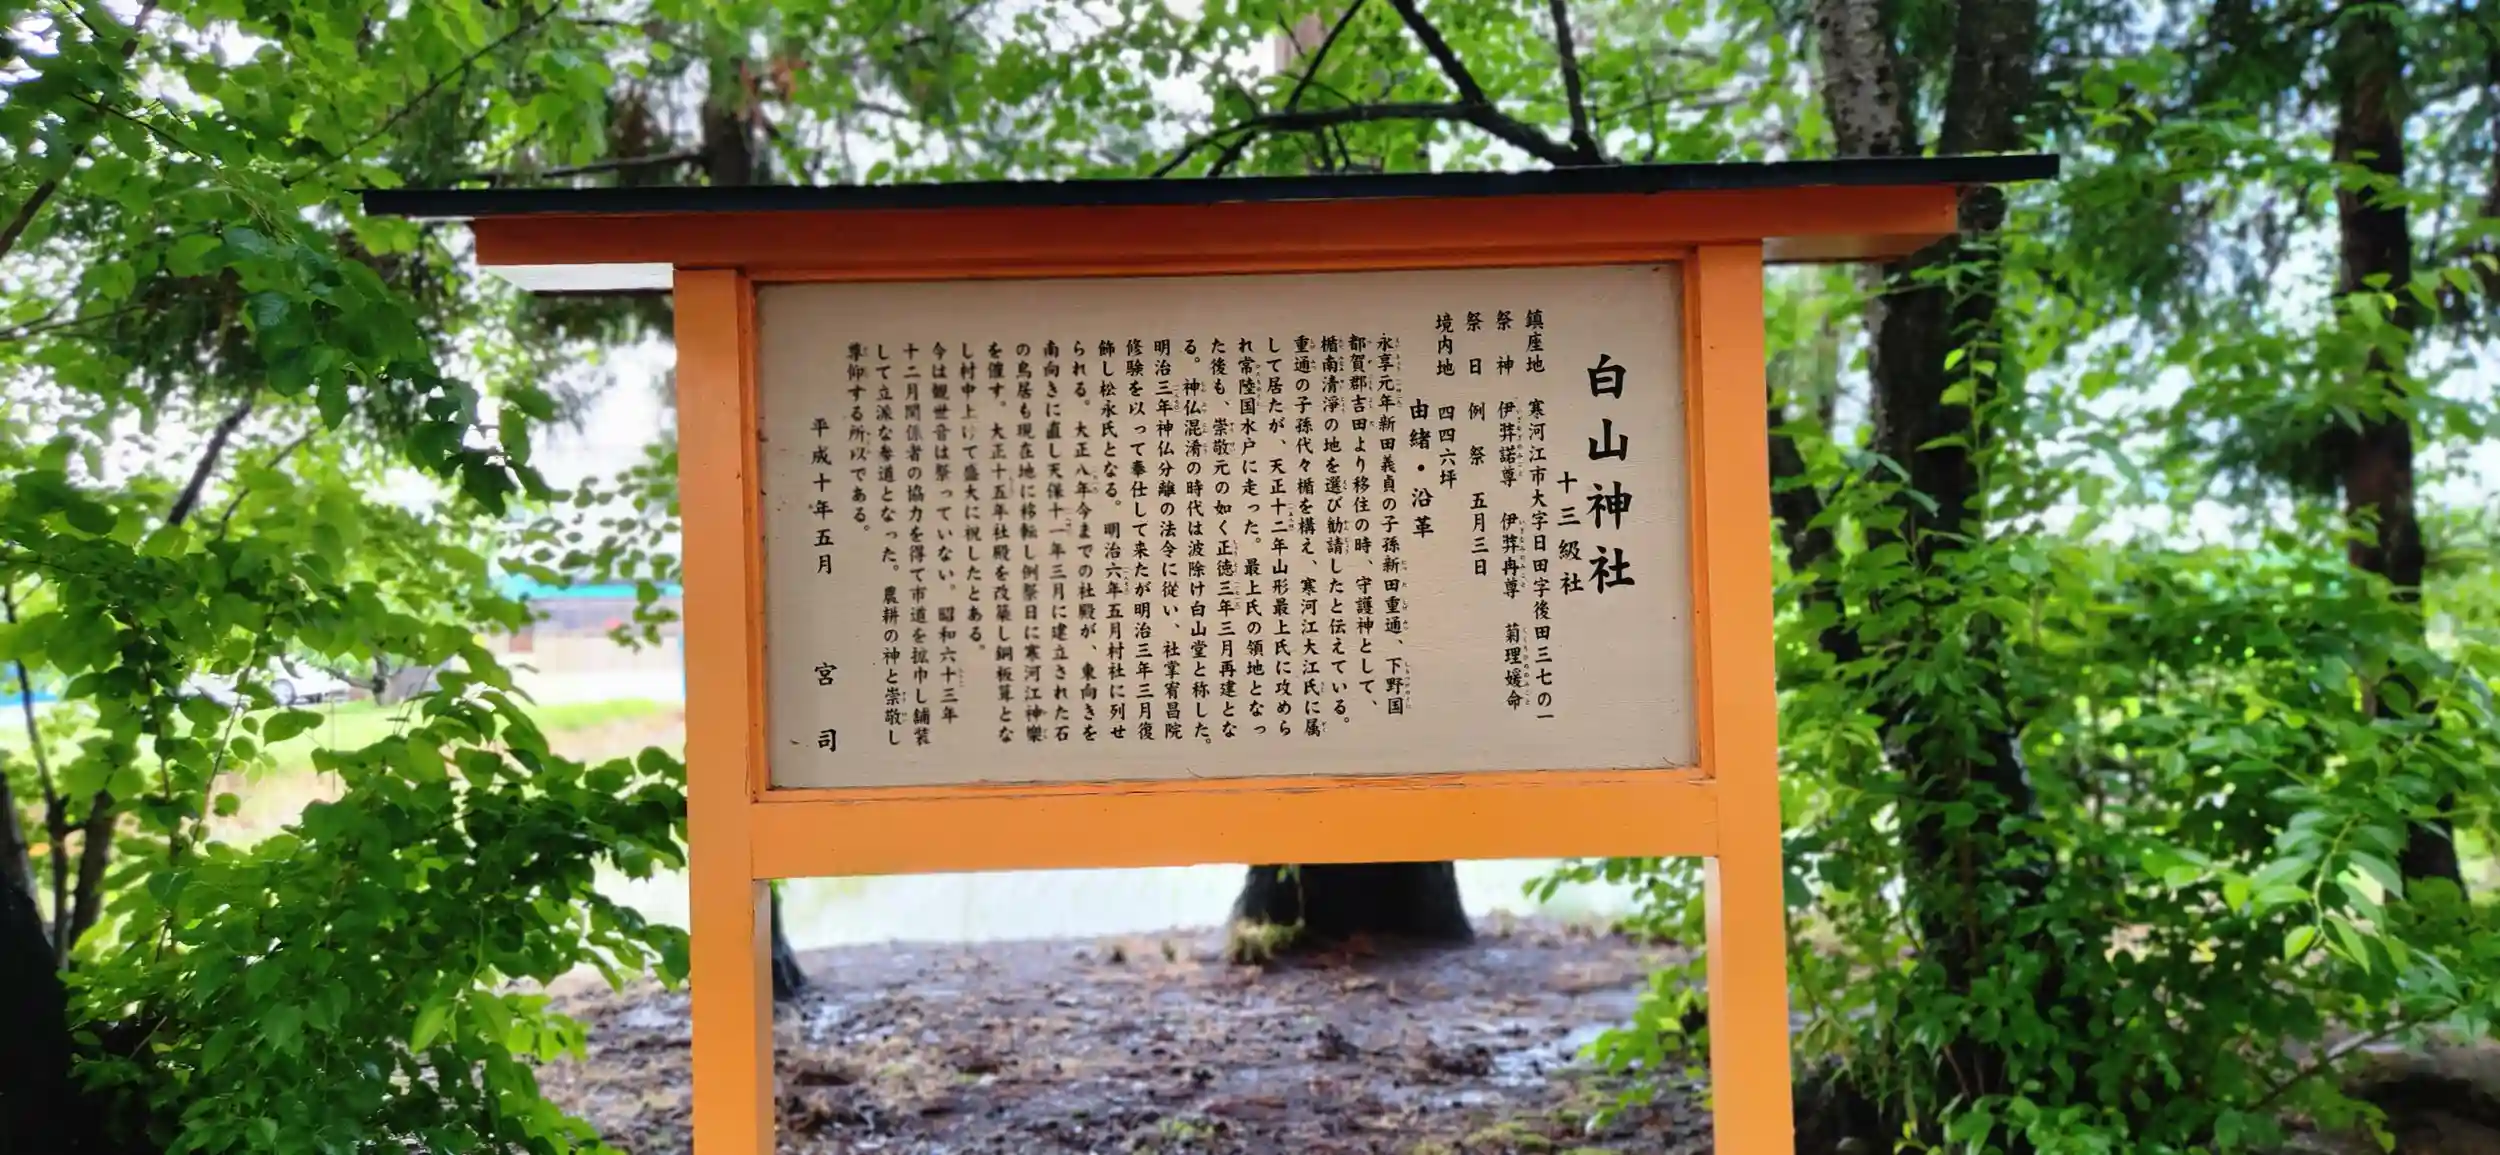 白山神社
十三級社
鎮座地 寒河江市大字日田字後田三七の一
祭神 伊弉諾尊 伊弉冉尊 菊理媛命
祭日 例祭 五月三日
境内地 四四六坪
由緒・沿革
永享元年新田義貞の子孫新田重通、下野国
都賀郡吉田より移住の時、守護神として、
楯南清淨の地を選び勧請したと伝えている。
重通の子孫代々楯を構え、寒河江大江氏に属
して居たが、天正十二年山形最上氏に攻めら
れ常陸国水戸に走った。最上氏の領地となっ
た後も、崇敬元の如く正徳三年三月再建とな
る。神仏混淆の時代は波除け白山堂と称した。
明治三年神仏分離の法令に従い、社掌宥昌院
修験を以って奉仕して来たが明治三年三月復
飾し松永氏となる。明治六年五月村社に列せ
られる。大正八年今までの社殿が、東向きを
南向きに直し天保十一年三月に建立された石
の鳥居も現在地に移転し例祭日に寒河江神樂
を催す。大正十五年社殿を改築し銅板葺とな
し村中上げて盛大に祝したとある。
今は観世音は祭っていない。昭和六十三年
十二月関係者の協力を得て市道を拡巾し舗装
して立派な参道となった。農耕の神と崇敬し
尊仰する所以である。
平成十年五月 宮司